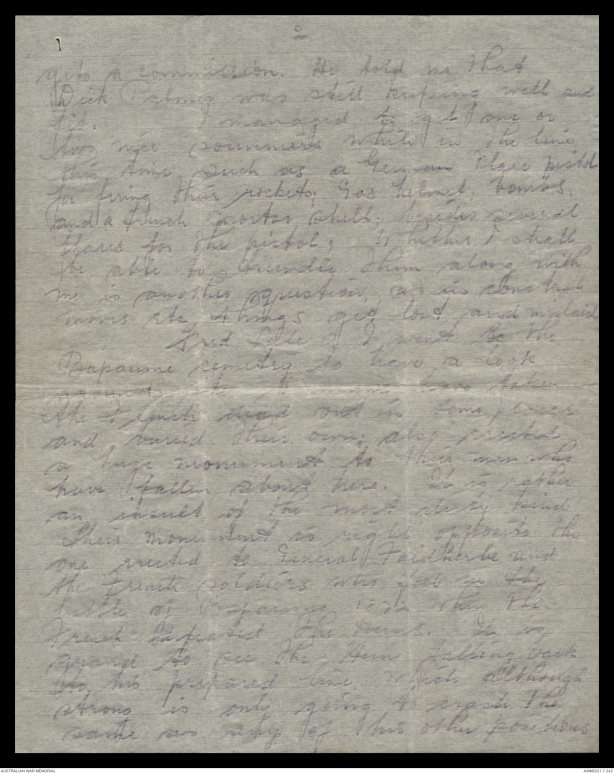 2
gets a commission. He told me that
Dick Palmer was still keeping well and
fit. I managed to get one or
two nice souvenirs while in the line
this time, such as a German Flare pistol
for firing their rockets; Gas helmet, bombs,
and a trench mortar shell; besides several
flares for the pistol; whether I shall
be able to bundle them along with
me is another question, as in constant
moves etc things get lost and mislaid
Fred Cole & I went to the
Bapaume cemetery to have a look
around have taken
the French dead out in some places
and buried their own; also erected
a huge monument to their men who
have fallen about here. It is rather
an insult of the most kind
Their monument is right opposite the
one erected to General Faidherbe and
the French soldiers who fell in the
battle of Bapaume 1870 when the
French defeated the Huns. It is
grand to see the Hun falling back
to his prepared line which although
strong is only going to meet the
same as any of his other positions
AUSTRALIAN WAR MEMORIAL